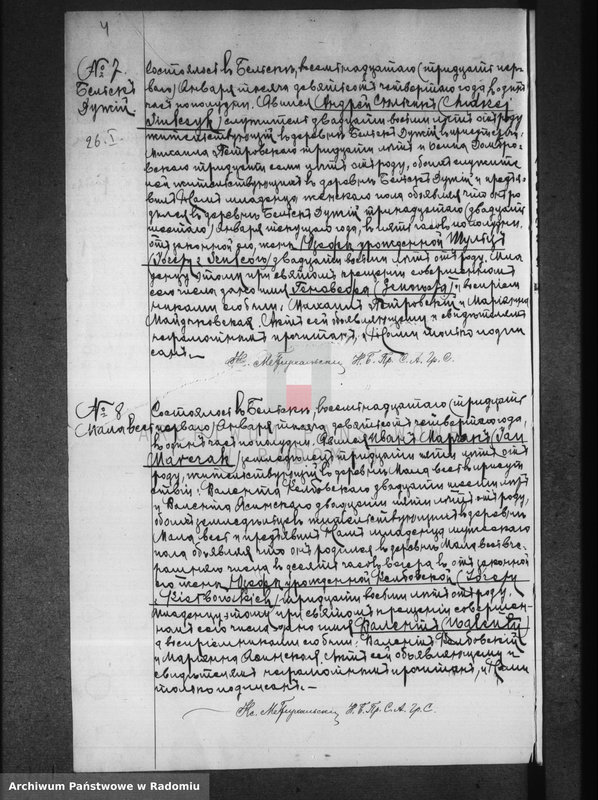 4
№ 7.
Бельскъ
Дужій
26. I.
Состоялось въ Бельскѣ, восемнадцатаго (тридцать пер-
ваго) Января тысяча девятьсотъ четвертаго года, въ
часъ пополудни. Явился Андрей (Andrzej
служитель двадцати восьми лѣтъ отъ роду
жительствующій въ деревнѣ Бельскъ Дужій въ присутствіи
Михаила Петровскаго тридцати лѣтъ и
тридцати семи лѣтъ отъ роду, обоихъ
жительствующихъ въ деревнѣ Бельскъ Дужій и предъя-
вилъ Намъ младенца женскаго пола объявляя что онъ ро-
дился въ деревнѣ Бельскъ Дужій тринадцатаго (двадцать
шестого) Января текущаго года, въ пять часовъ пополудни
отъ законной его жены Юзефы урожденной
(Józefy z двадцати восьми лѣтъ отъ роду. Мла-
денцу этому при святомъ крещеніи совершенномъ
сего числа дано имя Геновефа (Genowefa) а воспріем-
никами его были: Михаилъ Петровскій и Маріанна
Майдановская. Актъ сей объявляющему и свидѣтелямъ
неграмотнымъ прочитанъ, Нами только подпи-
санъ.—
Кс. Н. Б. Пр. С. А. Гр. С.
№ 8
Мала весь
Состоялось въ Бельскѣ, восемнадцатаго (тридцать
перваго) Января тысяча девятьсотъ четвертаго года,
въ часъ пополудни. Явился Иванъ Марчакъ (Jan
Marczak) земледѣлецъ тридцати пяти лѣтъ отъ
роду, жительствующій въ деревнѣ Мала весь въ присут-
ствіи: Валентія Келбовскаго двадцати шести лѣтъ
и Валентія Ясинскаго двадцати пяти лѣтъ отъ роду,
обоихъ земледѣльцевъ жительствующихъ въ деревнѣ
Мала весь и предъявилъ Намъ младенца мужескаго
пола объявляя что онъ родился въ деревнѣ Мала весь вче-
рашняго числа въ десять часовъ вечера отъ законной
его жены Юзефы урожденной Келбовской (Józefy
z Kiełbowskich) тридцати восьми лѣтъ отъ роду.
Младенцу этому при святомъ крещеніи совершен-
номъ сего числа дано имя Валентій (Walenty)
а воспріемниками его были: Валентій Келбовскій
и Маріанна Ясинская. Актъ сей объявляющему и
свидѣтелямъ неграмотнымъ прочитанъ, Нами
только подписанъ.—
Кс. Н. Б. Пр. С. А. Гр. С.
Archiwum Państwowe w Radomiu